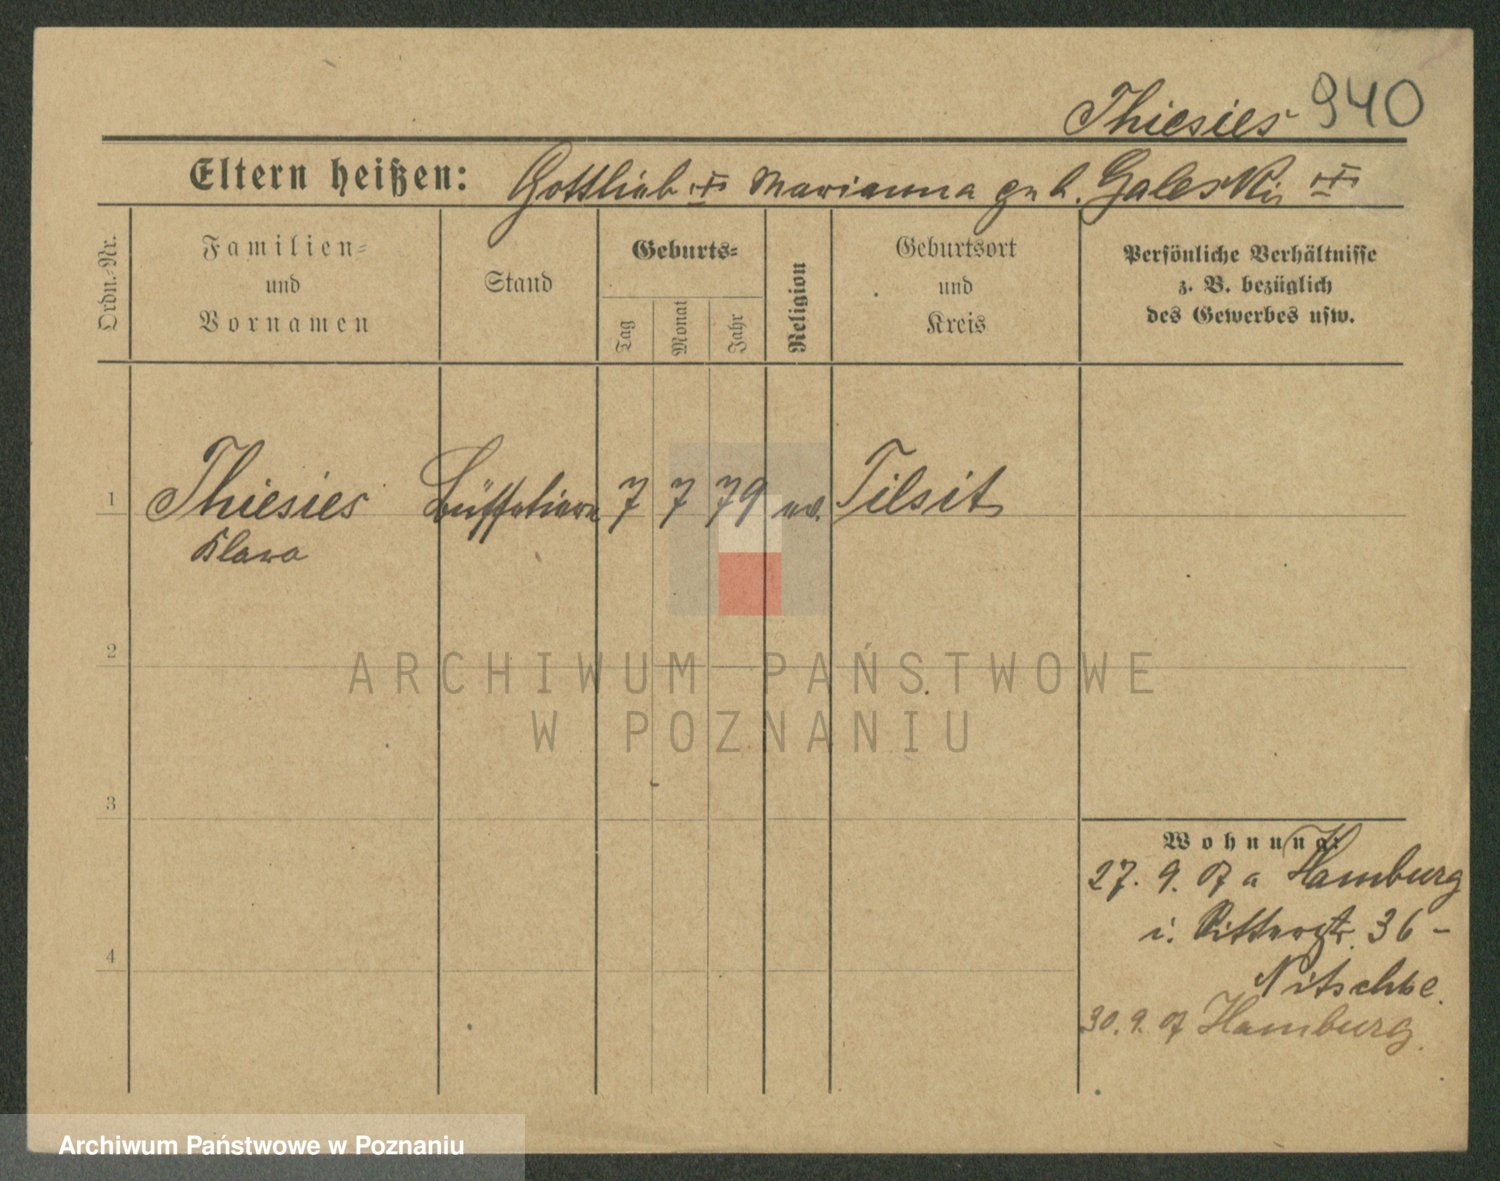 Thiesies 940
Eltern heißen: Gottlieb Marianna geb. Galeski
Ordn.-Nr.
Familien-
und
Vornamen
Stand
Geburts-
Tag
Monat
Jahr
Religion
Geburtsort
und
Kreis
Persönliche Verhältnisse
z. B. bezüglich
des Gewerbes usw.
1 Thiesies 7 7 79 ev. Tilsit
Klara
2
ARCHIWUM PAŃSTWOWE
W POZNANIU
3
Wohnung:
27. 9. 07 a Hamburg
i. Ritterstr. 36 -
Nitschke.
4
30. 9. 07 Hamburg.
Archiwum Państwowe w Poznaniu